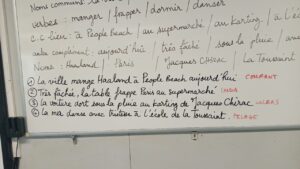 Noms communs : la v
verbes : manger / frapper / dormir / danser
c.c. lieu : à People Beach / au supermarché / au karting / à l'é
autre complément : aujourd'hui / très fâché / sous la pluie / ave
Noms : Haaland / Paris / Jacques CHIRAC / La Toussaint
① La ville mange Haaland à People Beach aujourd'hui COURANT
② Très fâchée, la table frappe Paris au supermarché INDIA
③ la voiture dort sous la pluie au karting de Jacques Chirac
④ La mer danse avec tristesse à l'école de la Toussaint.